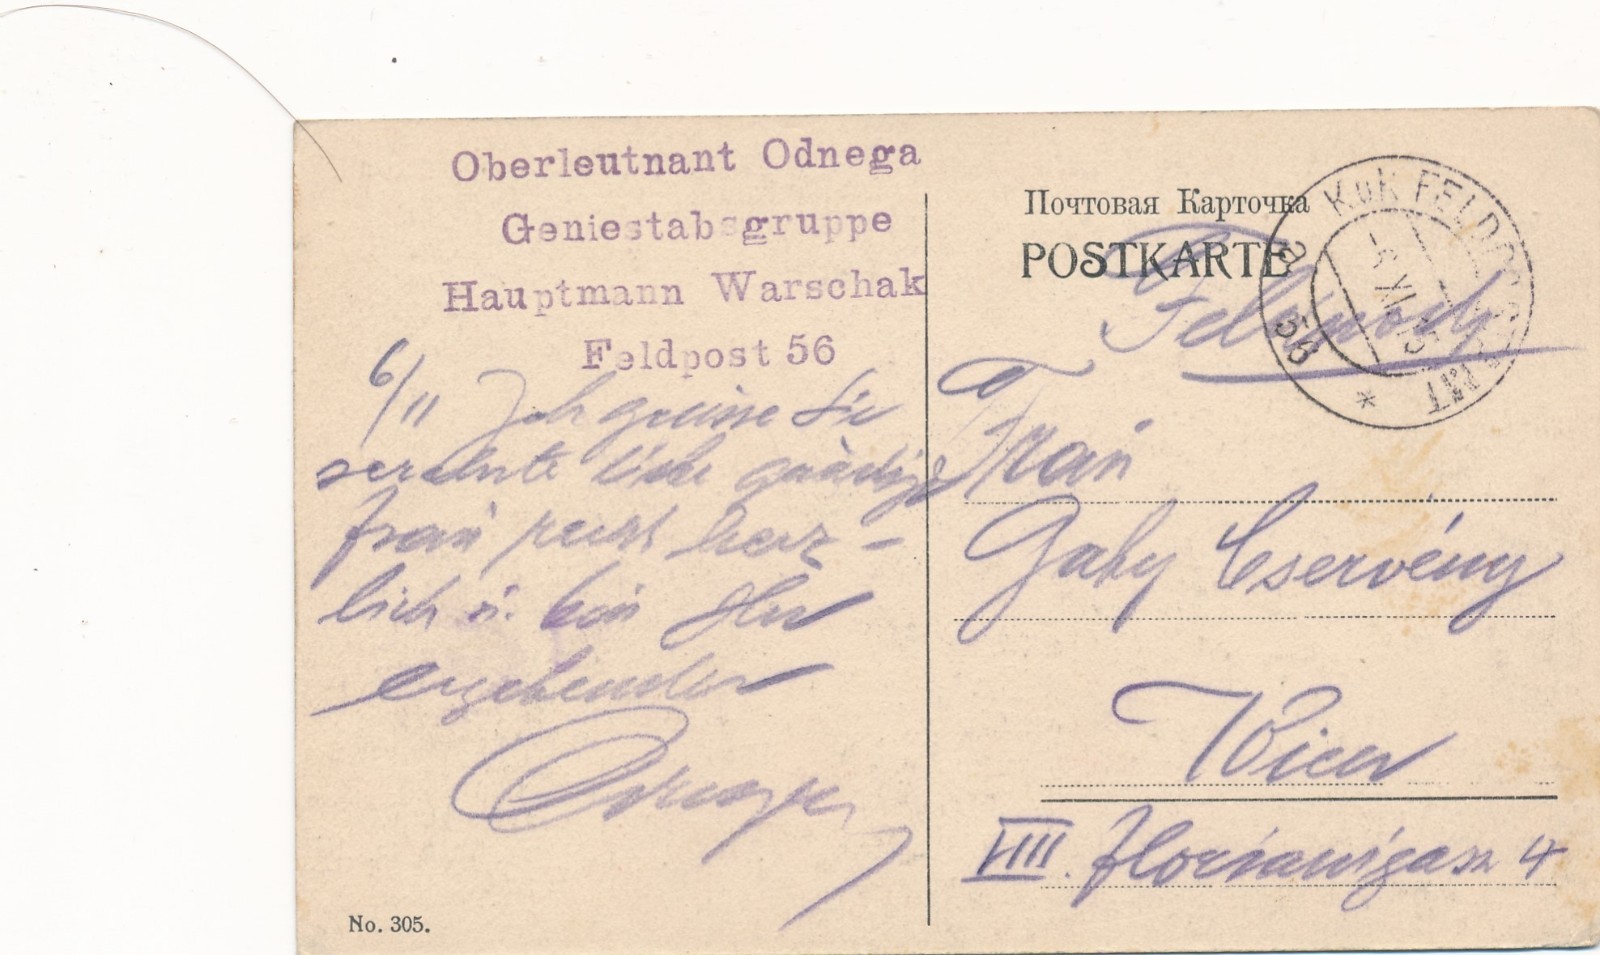 Oberleutnant Odnega
Geniestabsgruppe
Hauptmann Warschak
Feldpost 56
6/11 Ich grüsse Sie
verehrte liebe gnädige
Frau recht herz-
lich u. bin Ihr
ergebender
Odnega
No. 305.
Почтовая Карточка
POSTKARTE
K.u.K. FELDPOSTAMT
a 56 *
-6. XI. 15
Feldpost
Frau
Gaby Cservény
Wien
VIII. Florianigasse 4